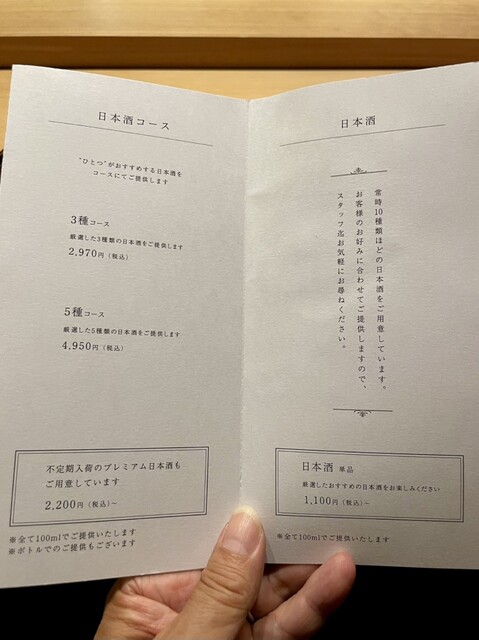 日本酒コース
"ひとつ"がおすすめする日本酒を
コースにてご提供します
3種コース
厳選した3種類の日本酒をご提供します
2,970円（税込）
5種コース
厳選した5種類の日本酒をご提供します
4,950円（税込）
不定期入荷のプレミアム日本酒も
ご用意しています
2,200円（税込）〜
※全て100mlでご提供いたします
※ボトルでのご提供もございます
日本酒
常時10種類ほどの日本酒をご用意しています。
お客様のお好みに合わせてご提供しますので、
スタッフ迄お気軽にお尋ねください。
日本酒 単品
厳選したおすすめの日本酒をお楽しみください
1,100円（税込）〜
※全て100mlでご提供いたします